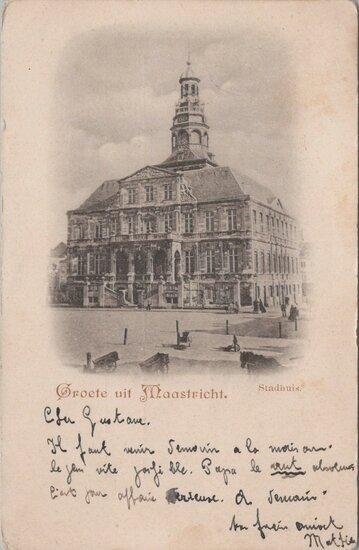 Groete uit Maastricht.
Stadhuis.
Cher Gustave.
Il faut venir demain a la maison.
le plus vite possible. Papa le veut absolument
C'est pour affaire sérieuse. A demain
ton frère